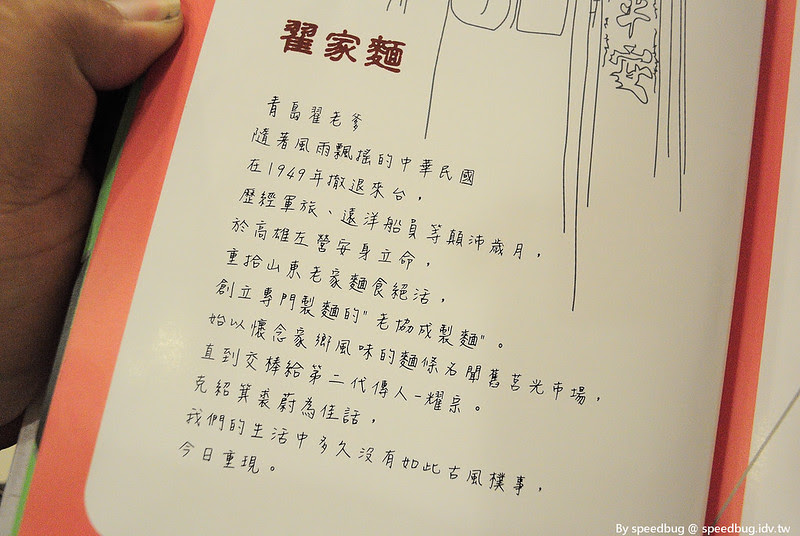 翟家麵
青島翟老爹
隨著風雨飄搖的中華民國
在1949年撤退來台，
歷經軍旅、遠洋船員等顛沛歲月，
於高雄左營安身立命，
重拾山東老家麵食絕活，
創立專門製麵的"老協成製麵"。
始以懷念家鄉風味的麵條名聞舊莒光市場，
直到交棒給第二代傳人-耀宗。
克紹箕裘蔚為佳話，
我們的生活中多久沒有如此古風樸事，
今日重現。
By speedbug @ speedbug.idv.tw